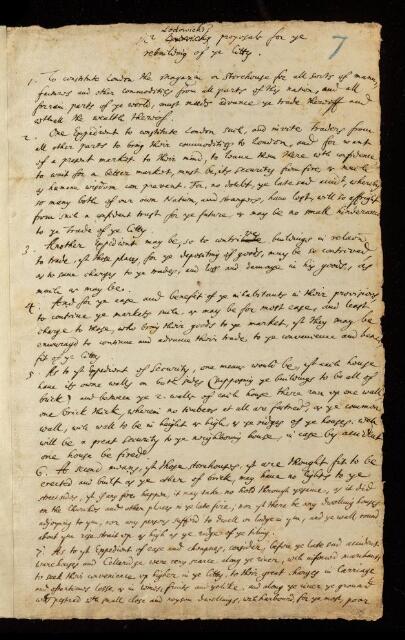 Lodowicks
proposals for ye
7
rebuilding of ye Citty.
1. To constitute London the magazin or Storehouse for all sorts of manu-
factures and other commodities from all parts of this nation, and all
forrain parts of ye world, must needs advance ye trade thereoff and
withall the wealth thereof.
2. One Expedient to constitute London such, and invite traders from
all other parts to bring their commodities to London, and for want
of a present market to their mind, to leave them there with confidence
to wait for a better market, must be, its security from fire, as much
as humane wisdom can prevent. For, no doubt, ye late sad accident, whereby
so many both of our own Nation, and strangers, have lost, will so affright
from such a confident trust for ye future, as may be no small hinderance
to ye Trade of ye Citty
3. Another Expedient may be, so to contrive buildings in relation
to trade, yt those places, for ye depositing of goods, may be so contrived
as to save charges to ye trader, and loss and damage in his goods, as
much as may be.
4. And for ye ease and benefit of ye inhabitants in their provisions
to contrive ye markets such as may be for most ease, and least
charge to those, who bring their goods to ye market, yt they may be
encouraged to continue and advance their trade, to ye convenience and bene-
fit of ye Citty
5. As to yt Expedient of Security, one means would be, yt each house
have its owne walls on both sides (supposing ye buildings to be all of
brick) and between ye 2 walls of each house there run up one wall
one brick thick, wherein no timbers at all are fastned, as ye common
wall, wch wall to be in height as high, as ye ridges of ye houses, wch
will be a great security to ye neighboring house, in case by accident
one house be fired.
6. As second means, yt those storehouses, yt are thought fit to be
erected and built as ye others of brick, may have no lights to ye
street sides, yt if any fire happen, it may take no hold through ym, as it did
on the Churches and other places in ye late fire; nor yt there be any dwelling houses
adjoyning to ym, nor any person suffered to dwell or lodge in ym, and ye wall round
about ym rise straight up as high as ye ridge of ye tiling.
7. As to yt Expedient of ease and cheapnes, consider, before ye late sad accident,
warehouses and Cellaridge were very scarce along ye river, wch inforced merchants
to seek their convenience up higher in ye Citty, to their great charges in Carriage
and oftentimes losse, as in wines, fruits and ye like, and along ye river ye ground
was pestered with small close and noysom dwellings, wch harboured, for ye most, poor